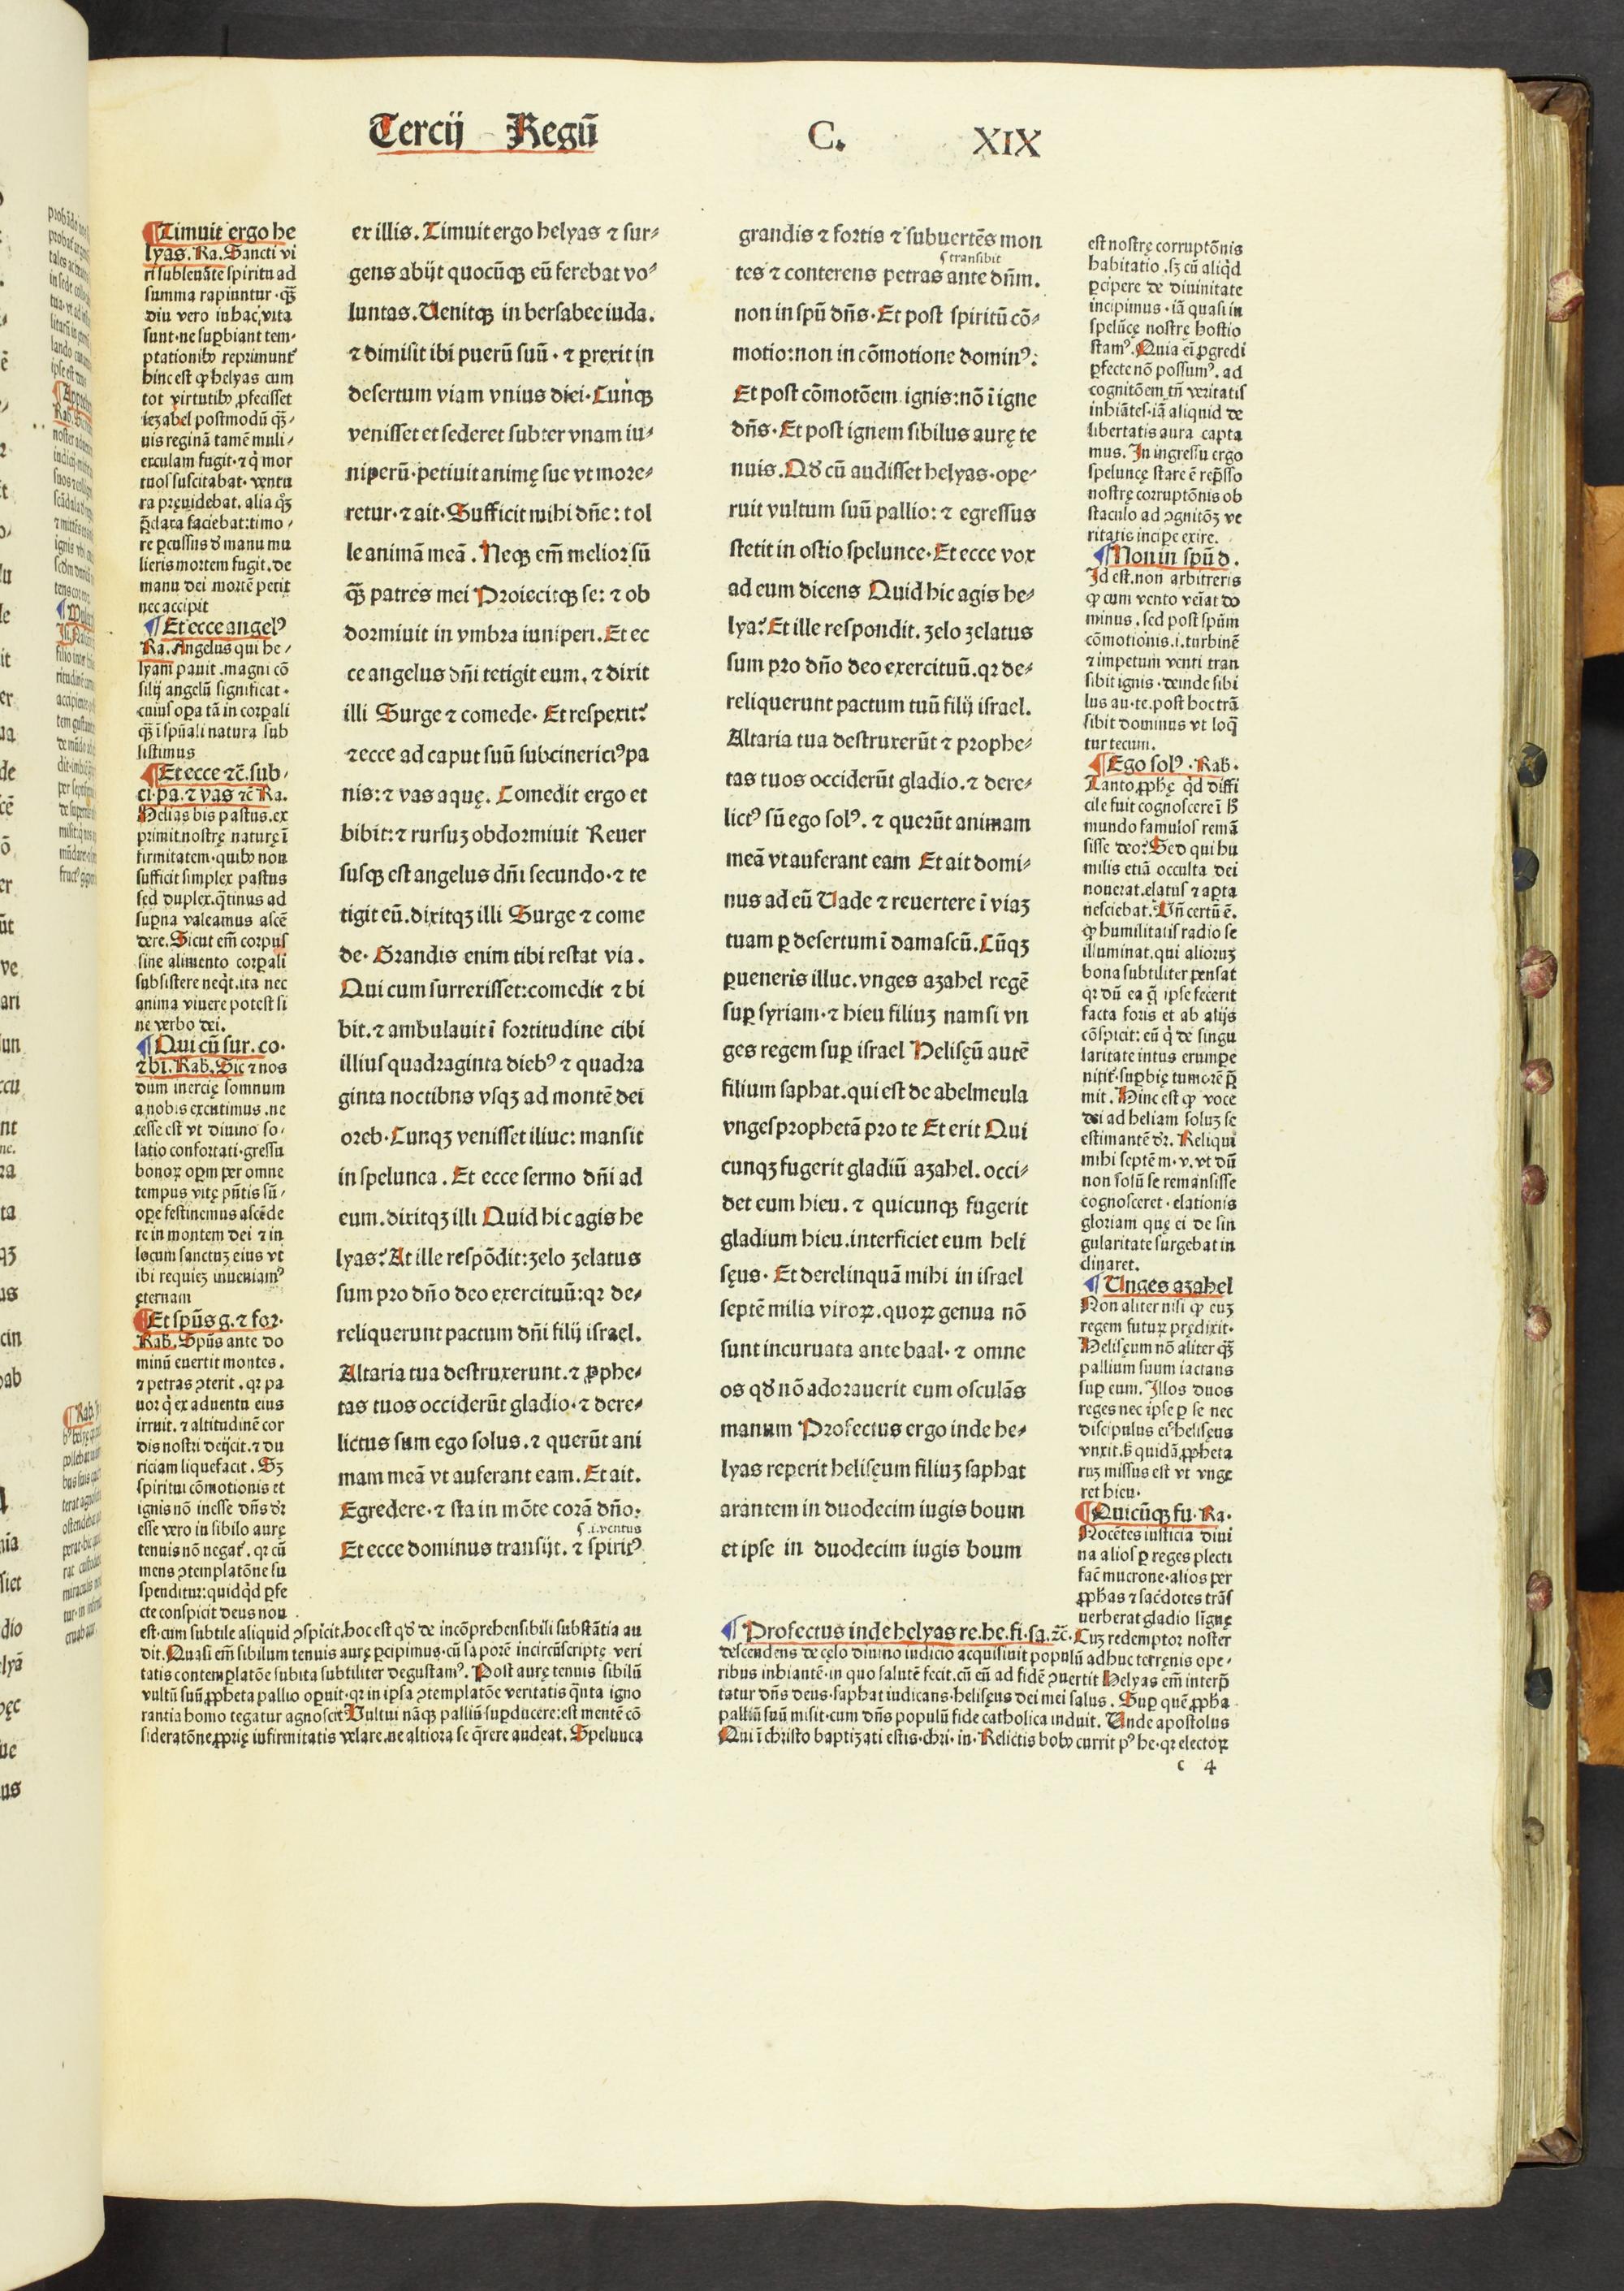 Tercij Regū C. XIX
¶Timuit ergo he
lyas. Ra. Sancti vi
ri subleuāte spiritu ad
summa rapiuntur. qȝ̄
diu vero in hac vita
sunt. ne suꝑbiant tem-
ptationibꝰ reprimunt᷑
hinc est ꝙ helyas cum
tot virtutibꝰ ꝓfecisset
iezabel postmodū qȝ̄-
uis reginā tamē muli-
erculam fugit. ⁊ q̇ mor
tuos suscitabat. ventu
ra pręuidebat. alia qȝ̄
p̄clara faciebat: timo-
re ꝑcussus ð manu mu
lieris mortem fugit. de
manu dei mortē petijt
nec accipit
¶Et ecce angelꝰ
Ra. Angelus qui he-
lyam pauit. magni cō
silij angelū significat.
cuius oꝑa tā in corꝑali
qȝ̄ ī spūali natura sub
sistimus
¶Et ecce ⁊c̄. sub-
ci. pa. ⁊ vas ⁊c̄ Ra.
Helias bis pastus. ex
primit nostrę naturę ī
firmitatem. quibꝰ non
sufficit simplex pastus
sed duplex. q̄tinus ad
suꝑna valeamus ascē
dere. Sicut em̄ corpus
sine alimento corꝑali
subsistere neq̇t. ita nec
anima viuere potest si
ne verbo dei.
¶Qui cū sur. co.
⁊ bi. Rab. Sic ⁊ nos
dum inercię somnum
a nobis excutimus. ne
cesse est vt diuino so-
latio confortati. gressu
bonoꝝ oꝑm per omne
tempus vitę pn̄tis sū-
oꝑe festinemus ascēde
re in montem dei ⁊ in
locum sanctuȝ eius vt
ibi requieȝ inueniamꝰ
ęternam
¶Et spūs g. ⁊ for.
Rab. Spūs ante do
minū euertit montes.
⁊ petras ↄterit. qꝛ pa
uor q̇ ex aduentu eius
irruit. ⁊ altitudinē cor
dis nostri deijcit. ⁊ du
riciam liquefacit. Sȝ
spiritui cōmotionis et
ignis nō inesse dn̄s ðr
esse vero in sibilo aurę
tenuis nō negat᷑. qꝛ cū
mens ↄtemplatōne su
spenditur: quidq̇d ꝑfe
cte conspicit deus non
est. cum subtile aliquid ↄspicit. hoc est qð de incōprehensibili substātia au
dit. Quasi em̄ sibilum tenuis aurę ꝑcipimus. cū saporē incircūscriptę veri
tatis contemplatōe subita subtiliter degustamꝰ. Post aurę tenuis sibilū
vultū suū ꝓpheta pallio oꝑuit. qꝛ in ipsa ↄtemplatōe veritatis q̄nta igno
rantia homo tegatur agnoscit Vultui nāqȝ palliū suꝑducere: est mentē cō
sideratōne ꝓprię infirmitatis velare. ne altiora se q̄rere audeat. Spelunca
ex illis. Timuit ergo helyas ⁊ sur-
gens abijt quocūqȝ eū ferebat vo-
luntas. Uenitqȝ in bersabee iuda.
⁊ dimisit ibi puerū suū. ⁊ ꝑrexit in
desertum viam vnius diei. Cunqȝ
venisset et sederet subter vnam iu-
niperū. petiuit animę sue vt more-
retur. ⁊ ait. Sufficit mihi dn̄e: tol
le animā meā. Neqȝ em̄ melior sū
qȝ̄ patres mei Proiecitqȝ se: ⁊ ob
dormiuit in vmbra iuniperi. Et ec
ce angelus dn̄i tetigit eum. ⁊ dixit
illi Surge ⁊ comede. Et respexit:
⁊ ecce ad caput suū subcinericiꝰ pa
nis: ⁊ vas aquę. Comedit ergo et
bibit: ⁊ rursuȝ obdormiuit Reuer
susqȝ est angelus dn̄i secundo. ⁊ te
tigit eū. dixitqȝ illi Surge ⁊ come
de. Grandis enim tibi restat via.
Qui cum surrexisset: comedit ⁊ bi
bit. ⁊ ambulauit ī fortitudine cibi
illius quadraginta diebꝰ ⁊ quadra
ginta noctibns vsqȝ ad montē dei
oreb. Cunqȝ venisset illuc: mansit
in spelunca. Et ecce sermo dn̄i ad
eum. dixitqȝ illi Quid hic agis he
lyas? At ille respōdit: zelo zelatus
sum pro dn̄o deo exercituū: qꝛ de-
reliquerunt pactum dn̄i filij israel.
Altaria tua destruxerunt. ⁊ ꝓphe-
tas tuos occiderūt gladio. ⁊ dere-
lictus sum ego solus. ⁊ querūt ani
mam meā vt auferant eam. Et ait.
Egredere. ⁊ sta in mōte corā dn̄o:
.i. ventus
Et ecce dominus transijt. ⁊ spiritꝰ
grandis ⁊ fortis ⁊ subuertēs mon
transibit
tes ⁊ conterens petras ante dn̄m.
non in spū dn̄s. Et post spiritū cō-
motio: non in cōmotione dominꝰ:
Et post cōmotōem ignis: nō ī igne
dn̄s. Et post ignem sibilus aurę te
nuis. Qð cū audisset helyas. ope-
ruit vultum suū pallio: ⁊ egressus
stetit in ostio spelunce. Et ecce vox
ad eum dicens Quid hic agis he-
lya? Et ille respondit. zelo zelatus
sum pro dn̄o deo exercituū. qꝛ de-
reliquerunt pactum tuū filij israel.
Altaria tua destruxerūt ⁊ prophe-
tas tuos occiderūt gladio. ⁊ dere-
lictꝰ sū ego solꝰ. ⁊ querūt animam
meā vt auferant eam Et ait domi-
nus ad eū Vade ⁊ reuertere ī viaȝ
tuam ꝑ desertum ī damascū. Cūqȝ
ꝑueneris illuc. vnges azahel regē
suꝑ syriam. ⁊ hieu filiuȝ namsi vn
ges regem suꝑ israel Helisęū autē
filium saphat. qui est de abelmeula
vnges prophetā pro te Et erit Qui
cunqȝ fugerit gladiū azahel. occi-
det eum hieu. ⁊ quicunqȝ fugerit
gladium hieu. interficiet eum heli
sęus. Et derelinquā mihi in israel
septē milia viroꝝ. quoꝝ genua nō
sunt incuruata ante baal. ⁊ omne
os qð nō adorauerit eum osculās
manum Profectus ergo inde he-
lyas reperit helisęum filiuȝ saphat
arantem in duodecim iugis boum
et ipse in duodecim iugis boum
est nostrę corruptōnis
habitatio. sȝ cū aliq̇d
ꝑcipere de diuinitate
incipimus. iā quasi in
spelūcę nostrę hostio
stamꝰ. Quia eī ꝓgredi
ꝑfecte nō possumꝰ. ad
cognitōem tn̄ veritatis
inhiātes. iā aliquid de
libertatis aura capta
mus. In ingressu ergo
speluncę stare ē rep̄sso
nostrę corruptōnis ob
staculo ad ↄgnitōȝ ve
ritatis inciꝑe exire.
¶Non in spū d.
Id est. non arbitreris
ꝙ cum vento veīat do
minus. sed post spūm
cōmotionis .i. turbinē
⁊ impetum venti tran
sibit ignis. deinde sibi
lus au. te. post hoc trā
sibit dominus vt loq̄
tur tecum.
¶Ego solꝰ. Rab.
Tanto ꝓphę q̇d diffi
cile fuit cognoscere ī h̄
mundo famulos remā
sisse deo? Sed qui hu
milis etiā occulta dei
nouerat. elatus ⁊ aꝑta
nesciebat. Vn̄ certū ē.
ꝙ humilitatis radio se
illuminat. qui alioruȝ
bona subtiliter pensat
qꝛ dū ea q̄ ipse fecerit
facta foris et ab alijs
cōspicit: eū q̇ de singu
laritate intus erumꝑe
nitit᷑. suꝑbię tumorē p̄
mit. Hinc est ꝙ voce
dei ad heliam soluȝ se
estimantē ðr. Reliqui
mihi septē m. v. vt dū
non solū se remansisse
cognosceret. elationis
gloriam quę ei de sin
gularitate surgebat in
clinaret.
¶Vnges azahel
Non aliter nisi ꝙ euȝ
regem futuꝝ prędixit.
Helisęum nō aliter qȝ̄
pallium suum iactans
suꝑ eum. Illos duos
reges nec ipse ꝑ se nec
discipulus eiꝰ helisęus
vnxit. sȝ quidā ꝓpheta
ruȝ missus est vt vnge
ret hieu.
¶Quicūqȝ fu. Ra.
Nocētes iusticia diui
na alios ꝑ reges plecti
fac̄ mucrone. alios per
ꝓphas ⁊ sac̄dotes trās
uerberat gladio lignę
¶Profectus inde helyas re. he. fi. sa. ⁊c̄. Cuȝ redemptor noster
descendens de cęlo diuino iudicio acquisiuit populū adhuc terrenis ope-
ribus inhiantē. in quo salutē fecit. cū eū ad fidē ↄuertit Helyas em̄ interp̄
tatur dn̄s deus. saphat iudicans. helisęus dei mei salus. Suꝑ quē ꝓpha
palliū suū misit. cum dn̄s populū fide catholica induit. Unde apostolus
Qui ī christo baptizati estis. chri. in. Relictis bobꝰ currit pꝰ he. qꝛ electoꝝ
c 4